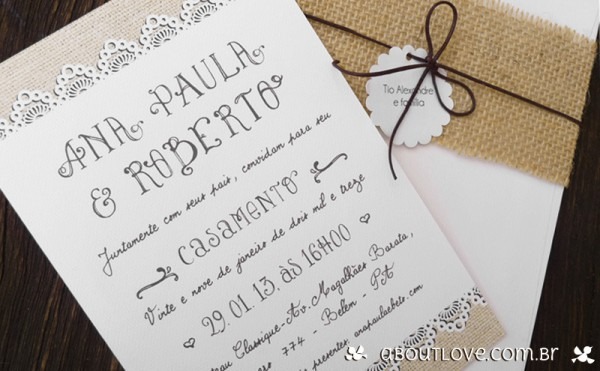 ANA PAULA
& ROBERTO
Juntamente com seus pais, convidam para seu
CASAMENTO
Vinte e nove de janeiro de dois mil e treze
29.01.13. às 16H00
Classique-Av. Magalhães Barata,
774 - Belém - PA
presentes, anapaulaebeto.com
Tio Alexandre
e família
aboutlove.com.br